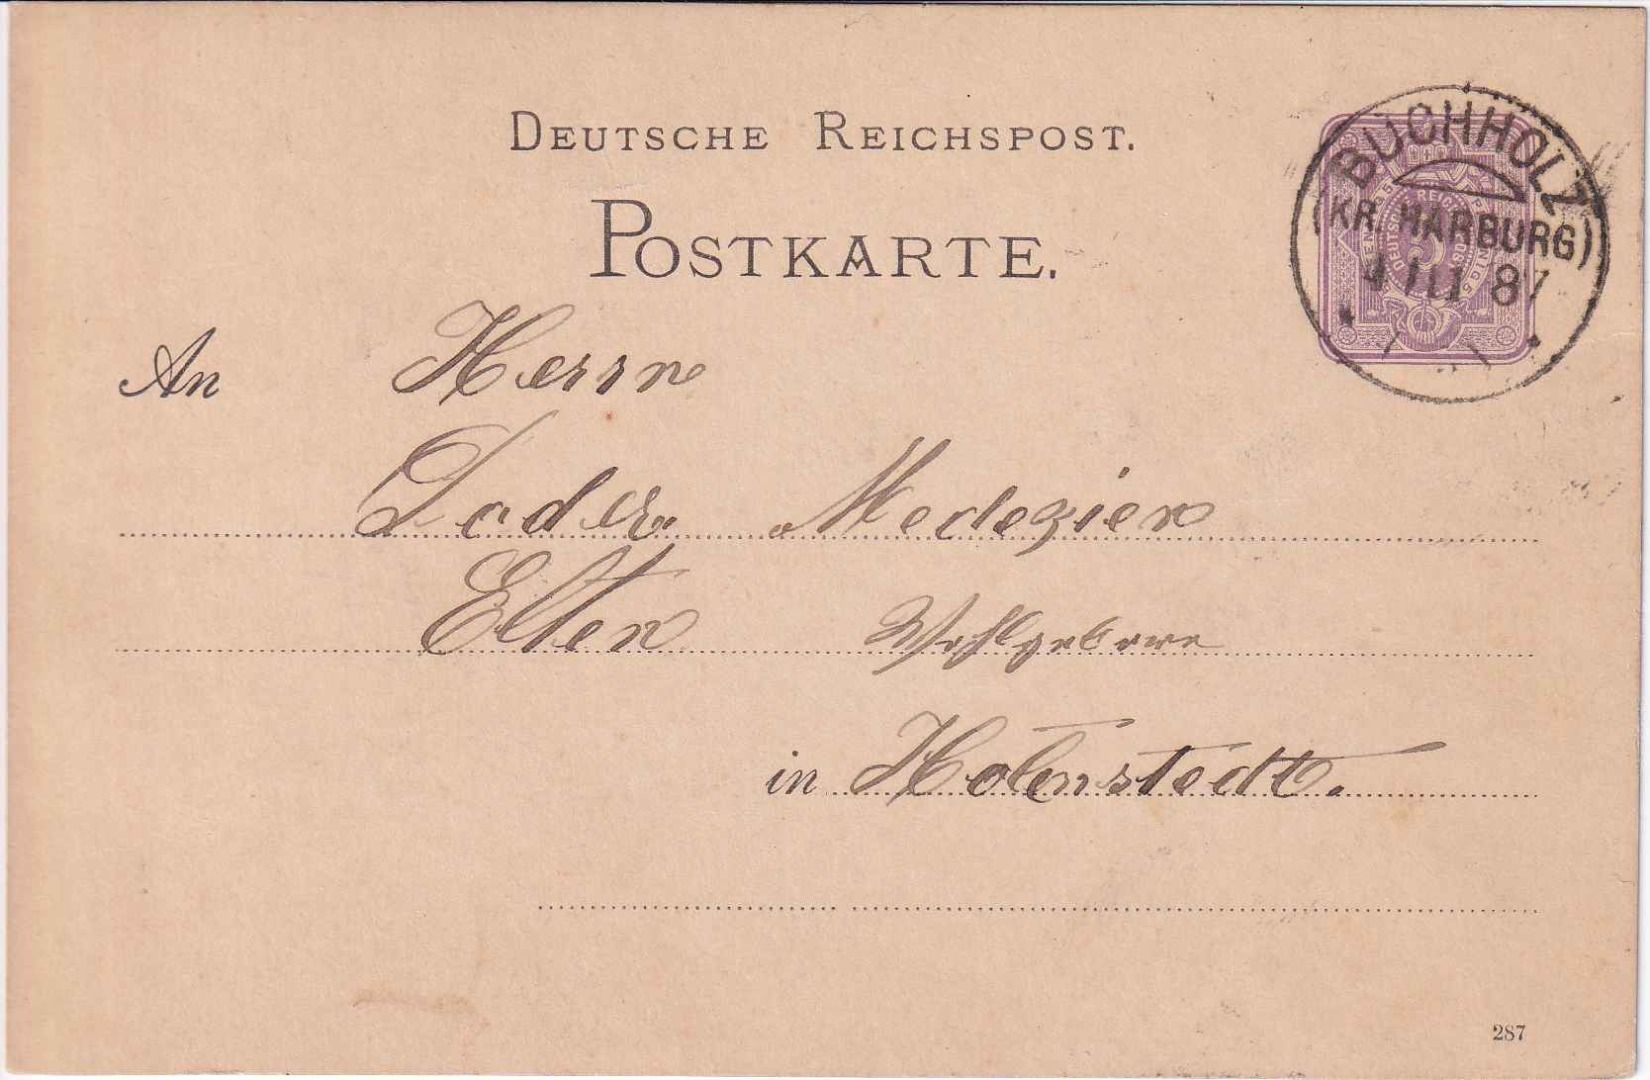 DEUTSCHE REICHSPOST.
POSTKARTE.
BUCHHOLZ
(KR. HARBURG)
III 87
DEUTSCHE REICHSPOST
5
An Herrn
Medezien
Elten Wohlgeboren
in Holenstedt.
287